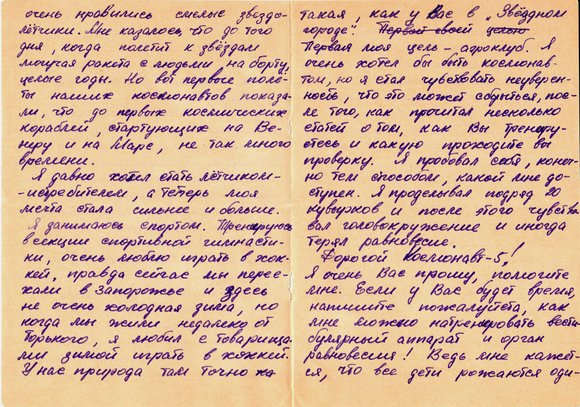 очень нравились смелые звездо-
лётчики. Мне казалось, что до того
дня, когда полетит к звёздам
могучая ракета с людьми на борту,
целые годы. Но вот первые полё-
ты наших космонавтов показа-
ли, что до первых космических
кораблей, стартующих на Ве-
неру и на Марс, не так много
времени.
Я давно хотел стать лётчиком-
-истребителем, а теперь моя
мечта стала сильнее и больше.
Я занимаюсь спортом. Тренируюсь
в секции спортивной гимнасти-
ки, очень люблю играть в хок-
кей, правда сейчас мы перее-
хали в Запорожье и здесь
не очень холодная зима, но
когда мы жили недалеко от
Горького, я любил с товарища-
ми зимой играть в хоккей.
У нас природа там точно та-
такая, как у Вас в „Звёздном
городе". Первой своей целью
Первая моя цель - аэроклуб. Я
очень хотел бы быть космонав-
том, но я стал чувствовать неуверен-
ность, что это может сбыться, пос-
ле того, как прочитал несколько
статей о том, как Вы трениру-
етесь и какую проходите вы
проверку. Я пробовал себя, конеч-
но тем способом, какой мне до-
ступен. Я проделывал подряд 20
кувырков и после этого чувство
вал головокружение и иногда
терял равновесие.
Дорогой Космонавт-5!
Я очень Вас прошу, помогите
мне. Если у Вас будет время,
напишите пожалуйста, как
мне можно натренировать вести-
булярный аппарат и орган
равновесия! Ведь мне кажет-
ся, что все дети рожаются оди-